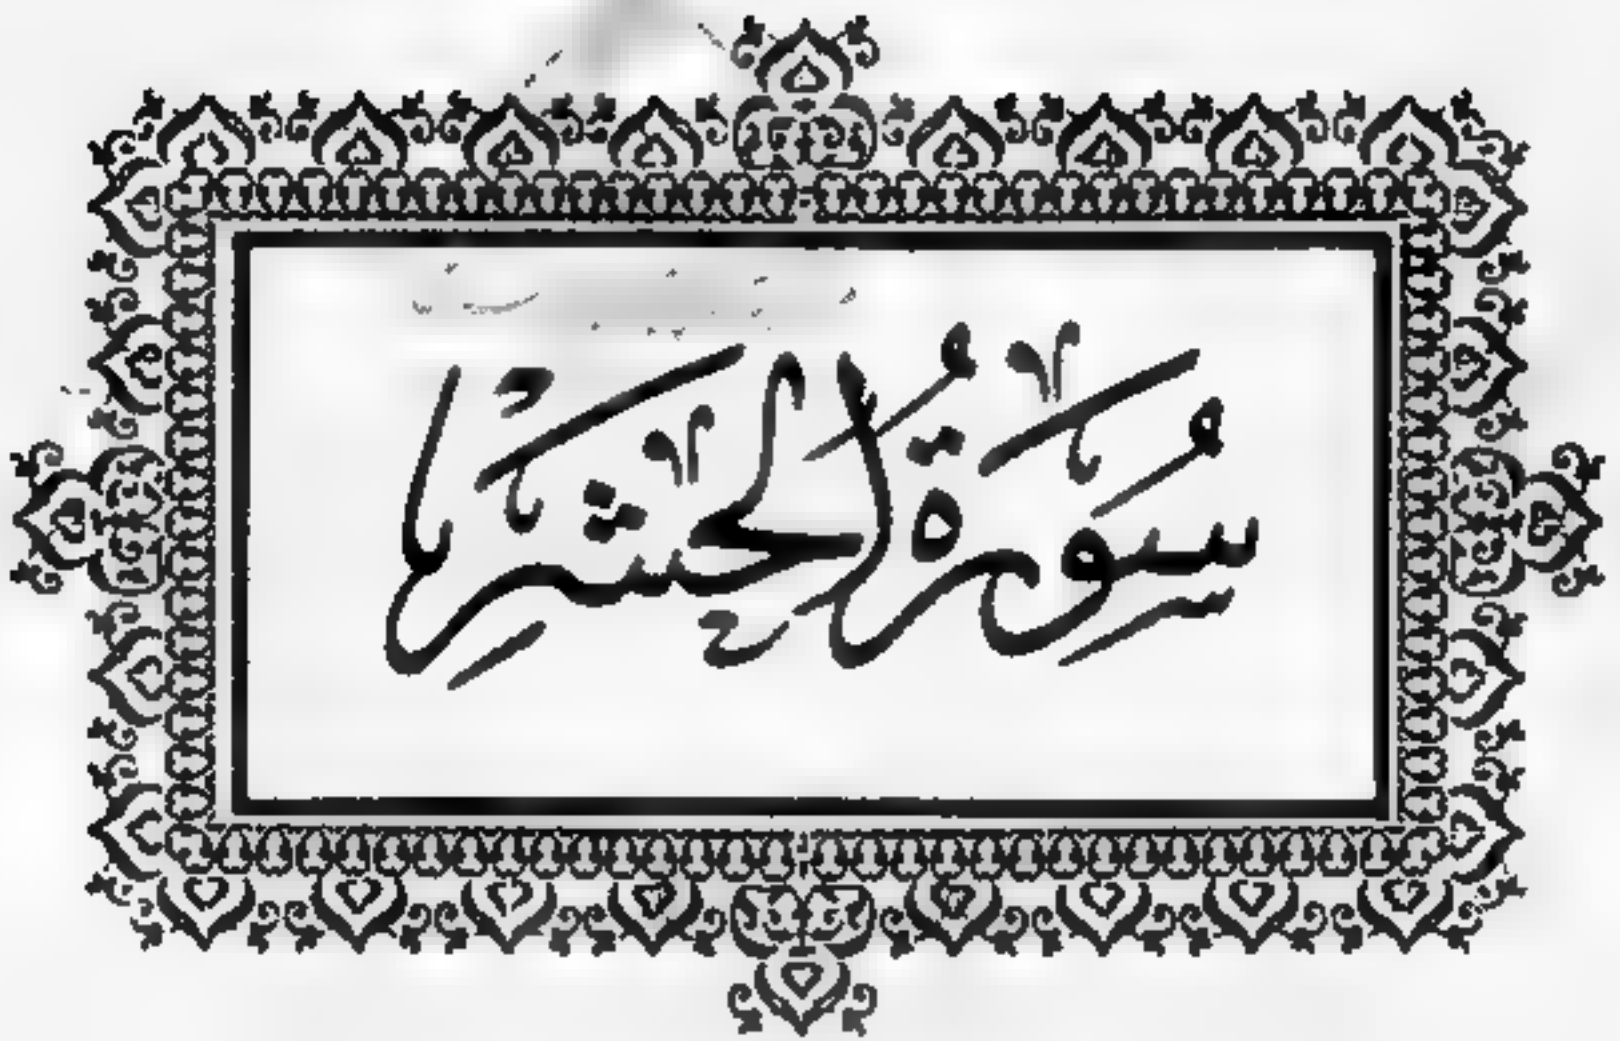 سُورَةُ الحَشرِ